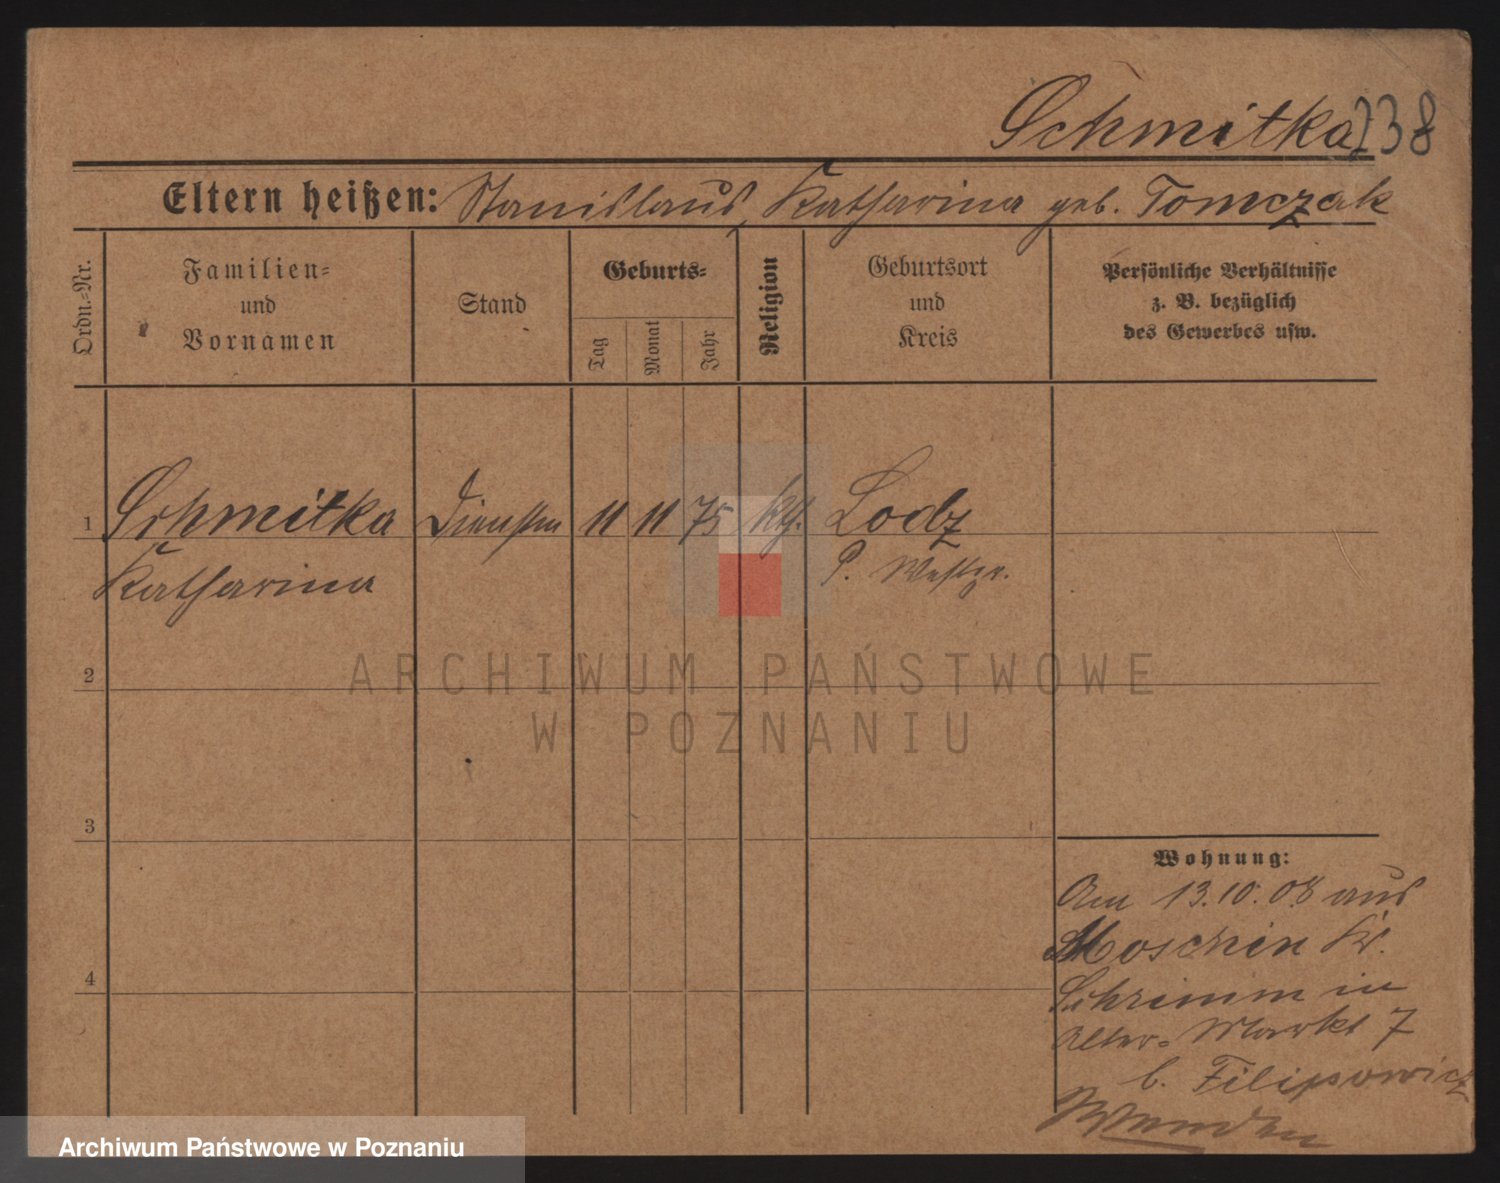 Schmitka 238
Eltern heißen: Stanislaus, Katharina geb. Tomczak
Ordn.-Nr.
Familien-
und
Vornamen
Stand
Geburts-
Tag
Monat
Jahr
Religion
Geburtsort
und
Kreis
Persönliche Verhältnisse
z. B. bezüglich
des Gewerbes usw.
1 Schmitka 11 11 75 kth. Lodz
Katharina P.
2
3
4
Wohnung:
Am 13.10.08 aus
Moschin Kr.
Schrimm in
Alter-Markt 7
b. Filipowicz
ARCHIWUM PAŃSTWOWE
W POZNANIU
Archiwum Państwowe w Poznaniu